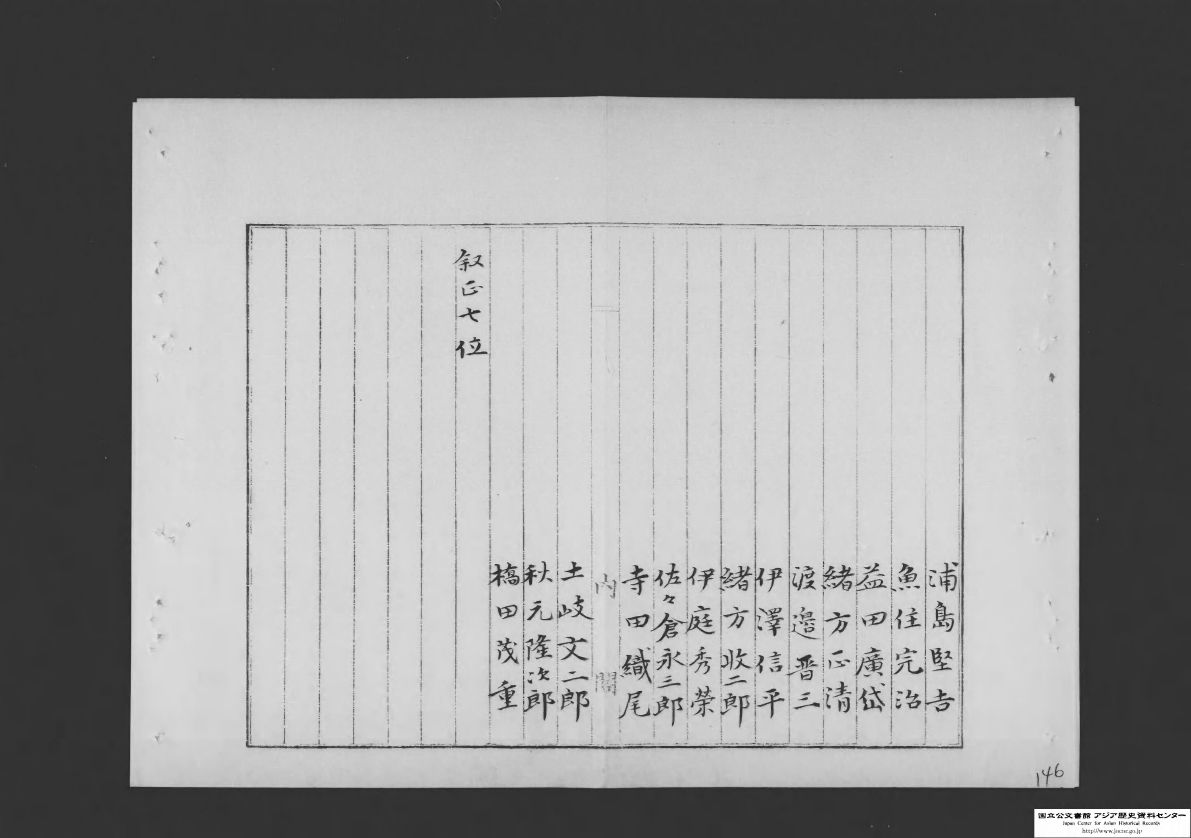 浦島堅吉
魚住完治
益田廣岱
緒方正清
渡邉晋三
伊澤信平
緒方收二郎
伊庭秀榮
佐々倉永三郎
寺田織尾
内閣
土岐文二郎
秋元隆次郎
橋田茂重
叙正七位
146
国立公文書館 アジア歴史資料センター
Japan Center for Asian Historical Records
http://www.jacar.go.jp